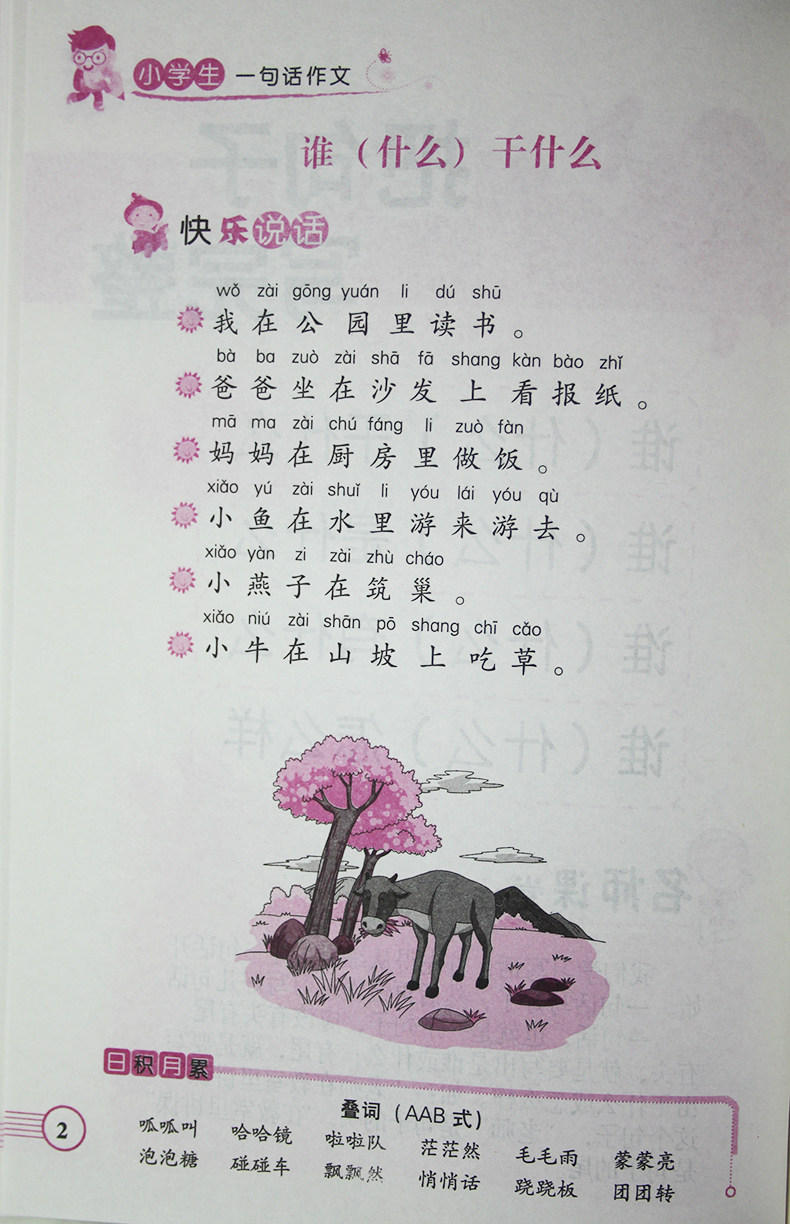 小学生一句话作文
谁（什么）干什么
快乐说话
wǒ zài gōng yuán li dú shū
我在公园里读书。
bà ba zuò zài shā fā shang kàn bào zhǐ
爸爸坐在沙发上看报纸。
mā ma zài chú fáng li zuò fàn
妈妈在厨房里做饭。
xiǎo yú zài shuǐ li yóu lái yóu qù
小鱼在水里游来游去。
xiǎo yàn zi zài zhù cháo
小燕子在筑巢。
xiǎo niú zài shān pō shang chī cǎo
小牛在山坡上吃草。
日积月累
叠词（AAB 式）
呱呱叫 哈哈镜 啦啦队 茫茫然 毛毛雨 蒙蒙亮
泡泡糖 碰碰车 飘飘然 悄悄话 跷跷板 团团转
2